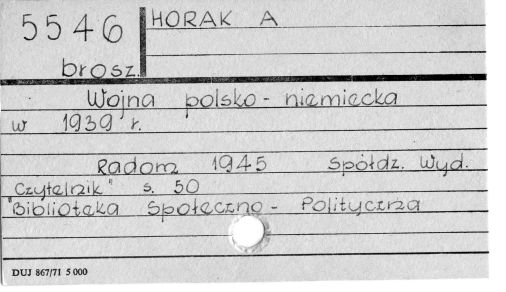 5546
brosz.
HORAK A
Wojna polsko-niemiecka
w 1939 r.
Radom 1945 Spółdz. Wyd.
Czytelnik" s. 50
"Biblioteka Społeczno-Polityczna
DUJ 867/71 5 000